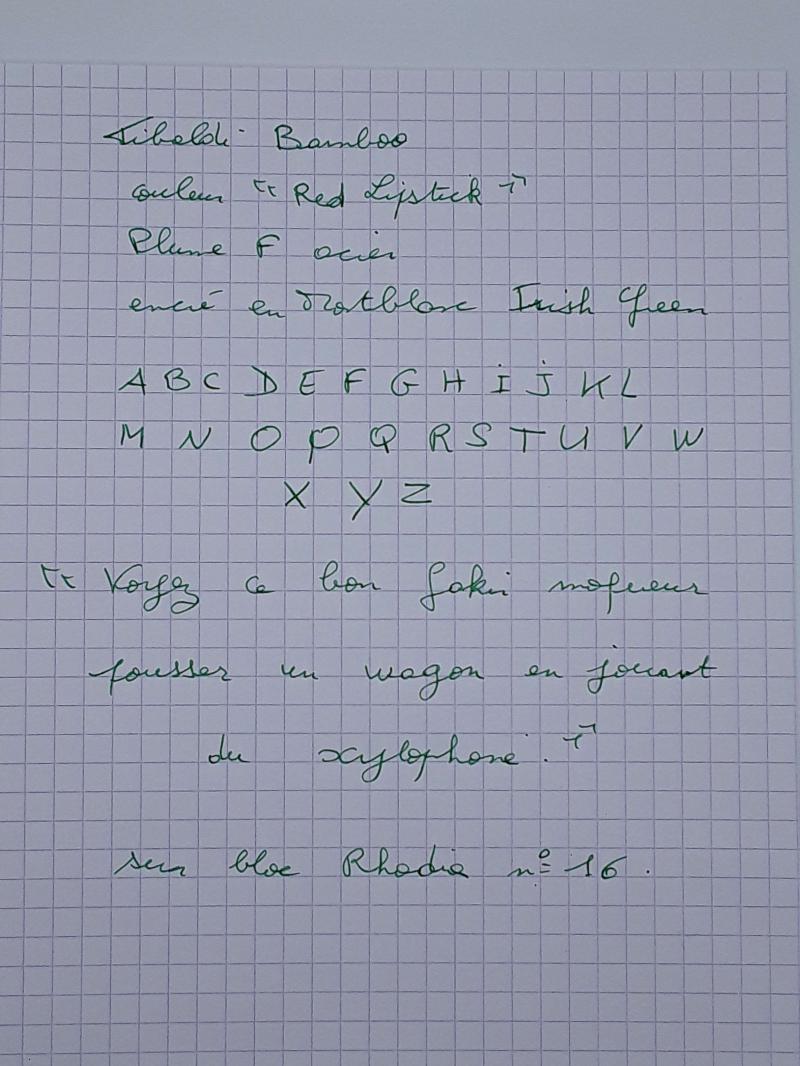 Tibaldi Bamboo
couleur " Red Lipstick "
Plume F acier
encré en Motblanc Irish Green
A B C D E F G H I J K L
M N O P Q R S T U V W
X Y Z
" Voyez ce bon fakir moqueur
pousser un wagon en jouant
du xylophone. "
sur bloc Rhodia n° 16.